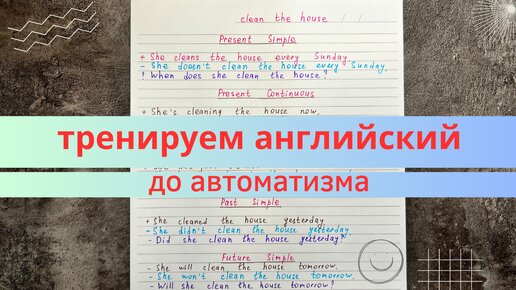 clean the house / /
Present Simple
+ She cleans the house every Sunday.
- She doesn't clean the house every Sunday.
? When does she clean the house?
Present Continuous
+ She's cleaning the house now.
тренируем английский
до автоматизма
Past Simple
+ She cleaned the house yesterday.
- She didn't clean the house yesterday.
- Did she clean the house yesterday?
Future Simple
- She will clean the house tomorrow.
- She won't clean the house tomorrow.
- Will she clean the house tomorrow?